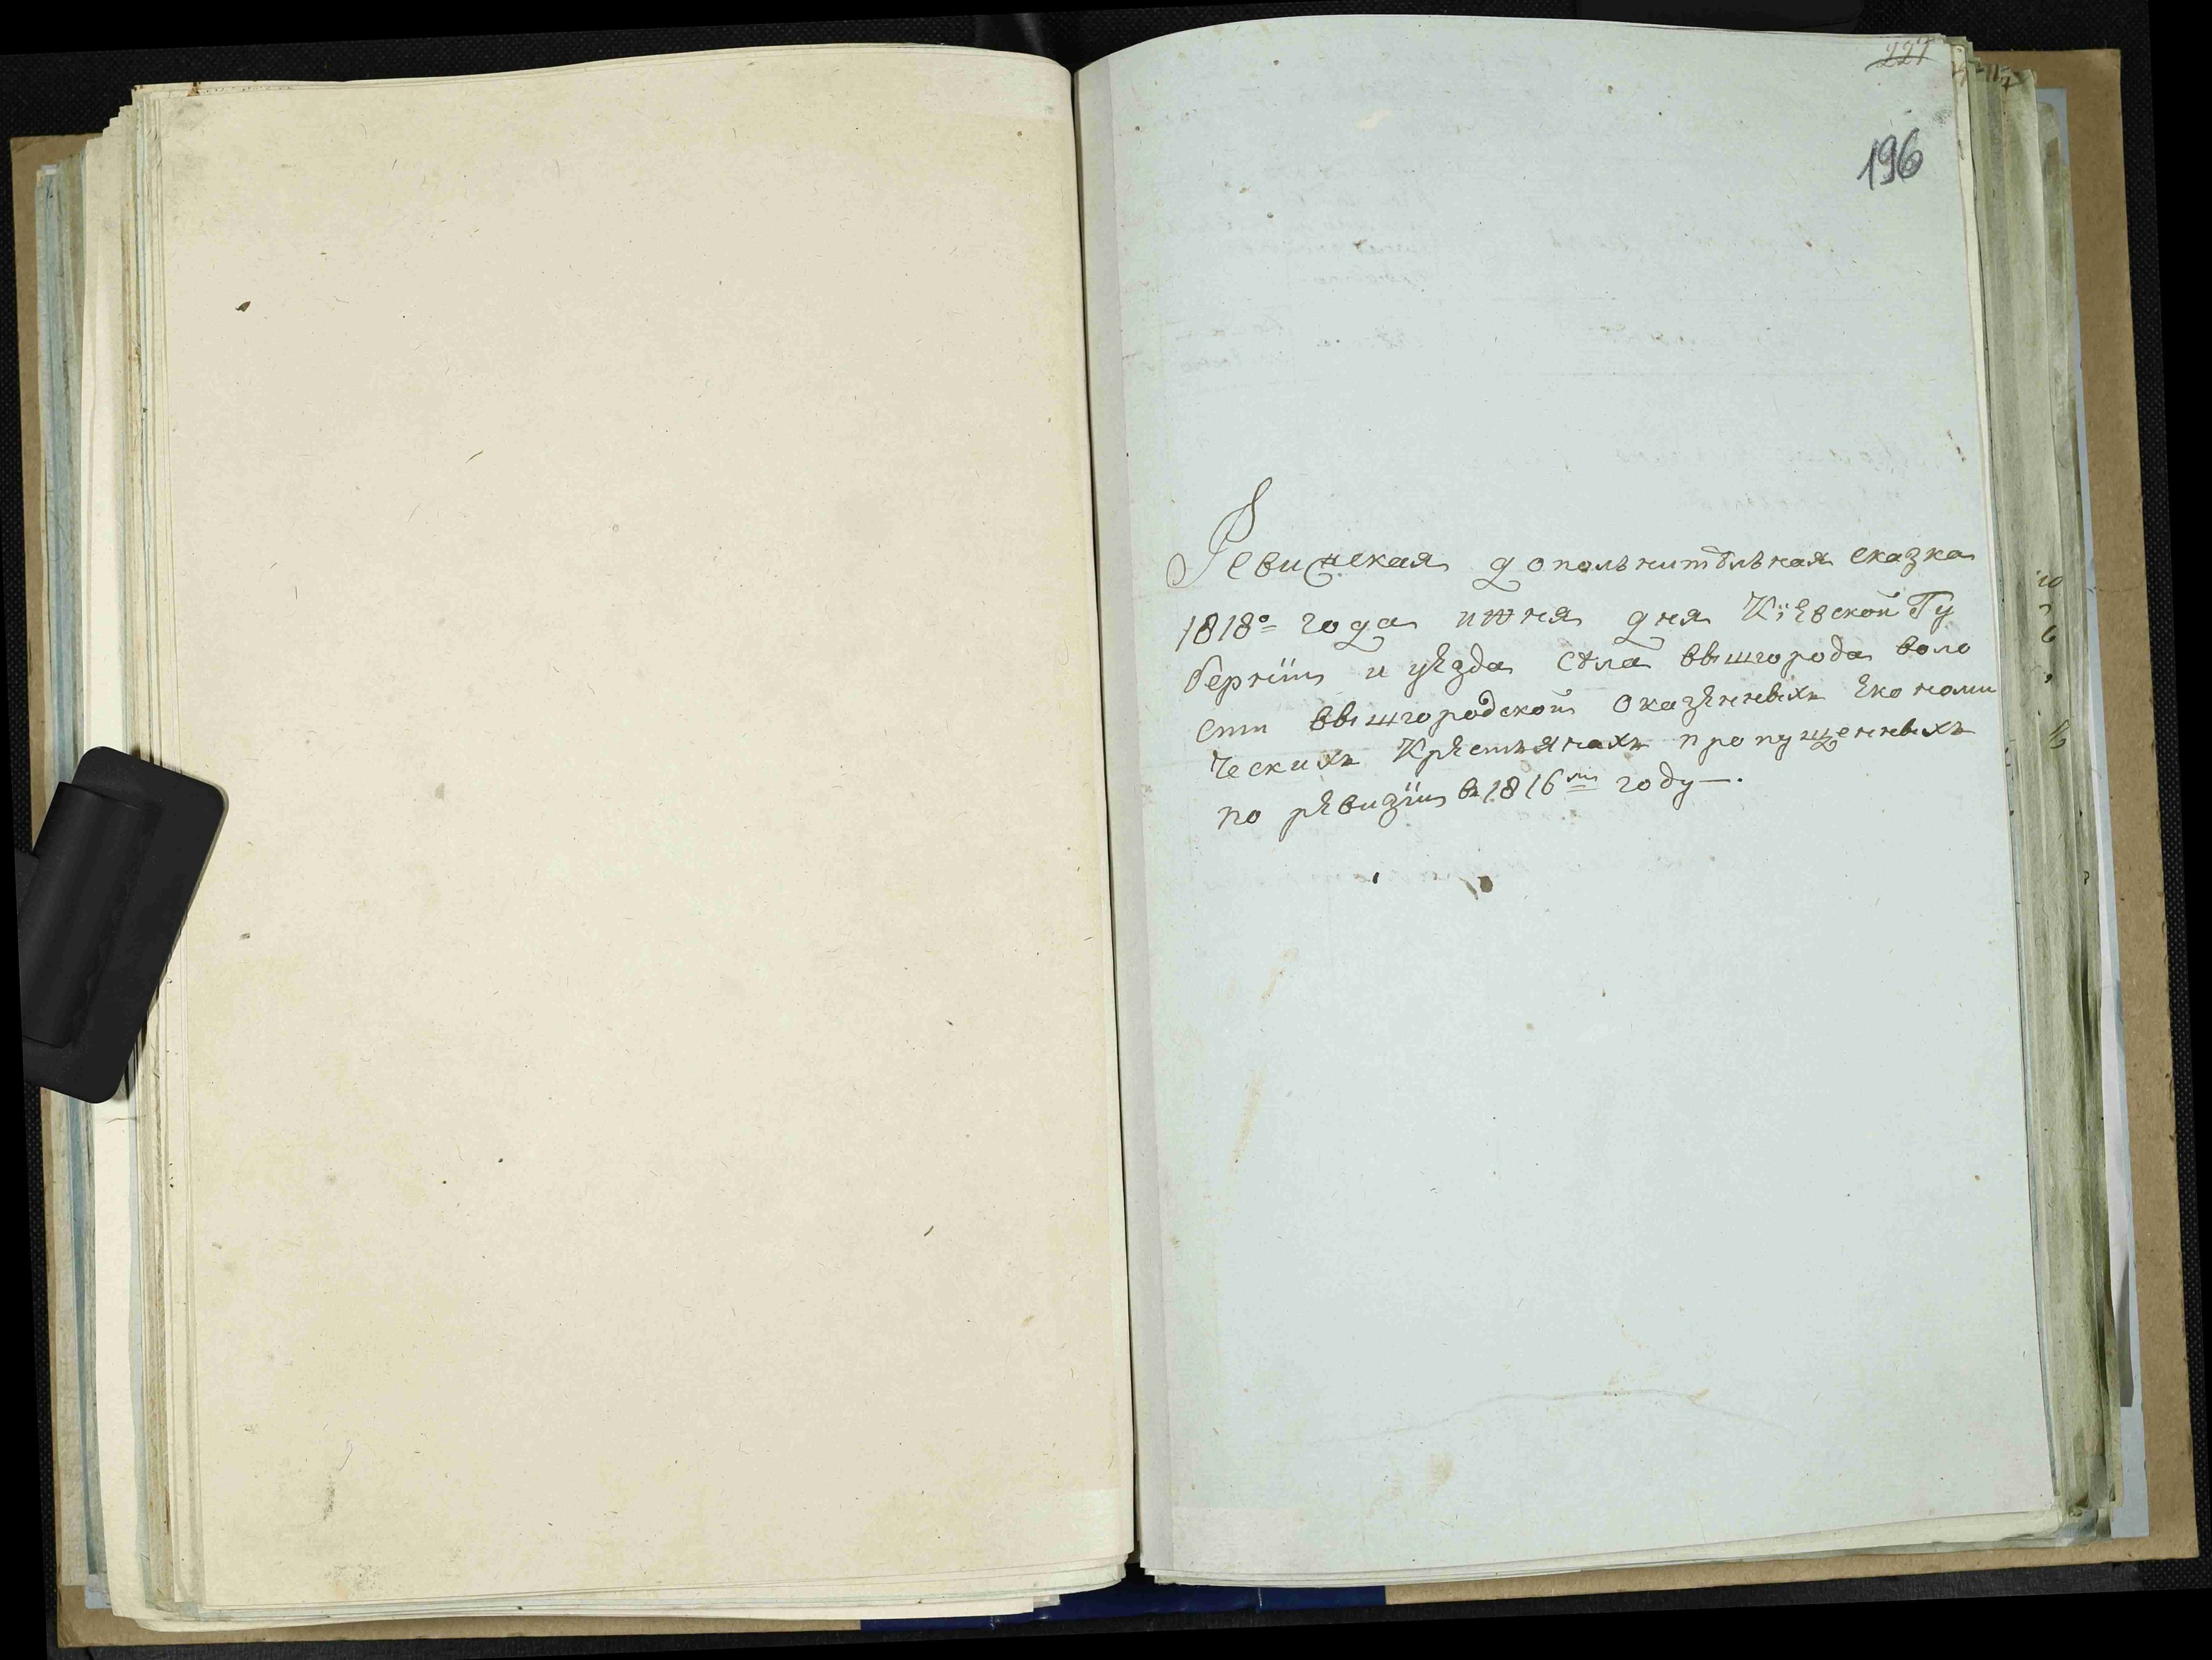 227
196
Ревизская дополнительная сказка
1818го года июня дня Кіевской Гу
берніи и уезда села вышгорода воло
сти вышгородской оказенныхъ Економи
ческихъ Крестьянахъ пропущенныхъ
по ревизіи въ 1816м году —.